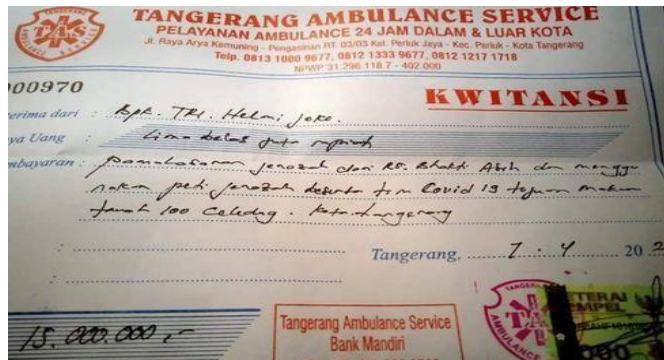 TANGERANG AMBULANCE SERVICE
PELAYANAN AMBULANCE 24 JAM DALAM & LUAR KOTA
Jl. Raya Arya Kemuning - Pengasinan RT. 03/03 Kel. Periuk Jaya - Kec. Periuk - Kota Tangerang
Telp. 0813 1000 9677, 0812 1333 9677, 0812 1217 1718
NPWP 31.296.118.7 - 402.000
TAS
00970
KWITANSI
erima dari : Bpk. TRI. Helmi Joko.
ya Uang : Lima belas juta rupiah
mbayaran : pemulasaran jenazah dari RS. Bhakti Asih dan menggu
nakan peti jenazah beserta tim Covid 19 tujuan makam
tanah 100 Ciledug. Kota tangerang
Tangerang, 7 - 4 20 2
15.000.000,-
Tangerang Ambulance Service
Bank Mandiri
TAS
AMBULANCE
METERAI
TEMPEL